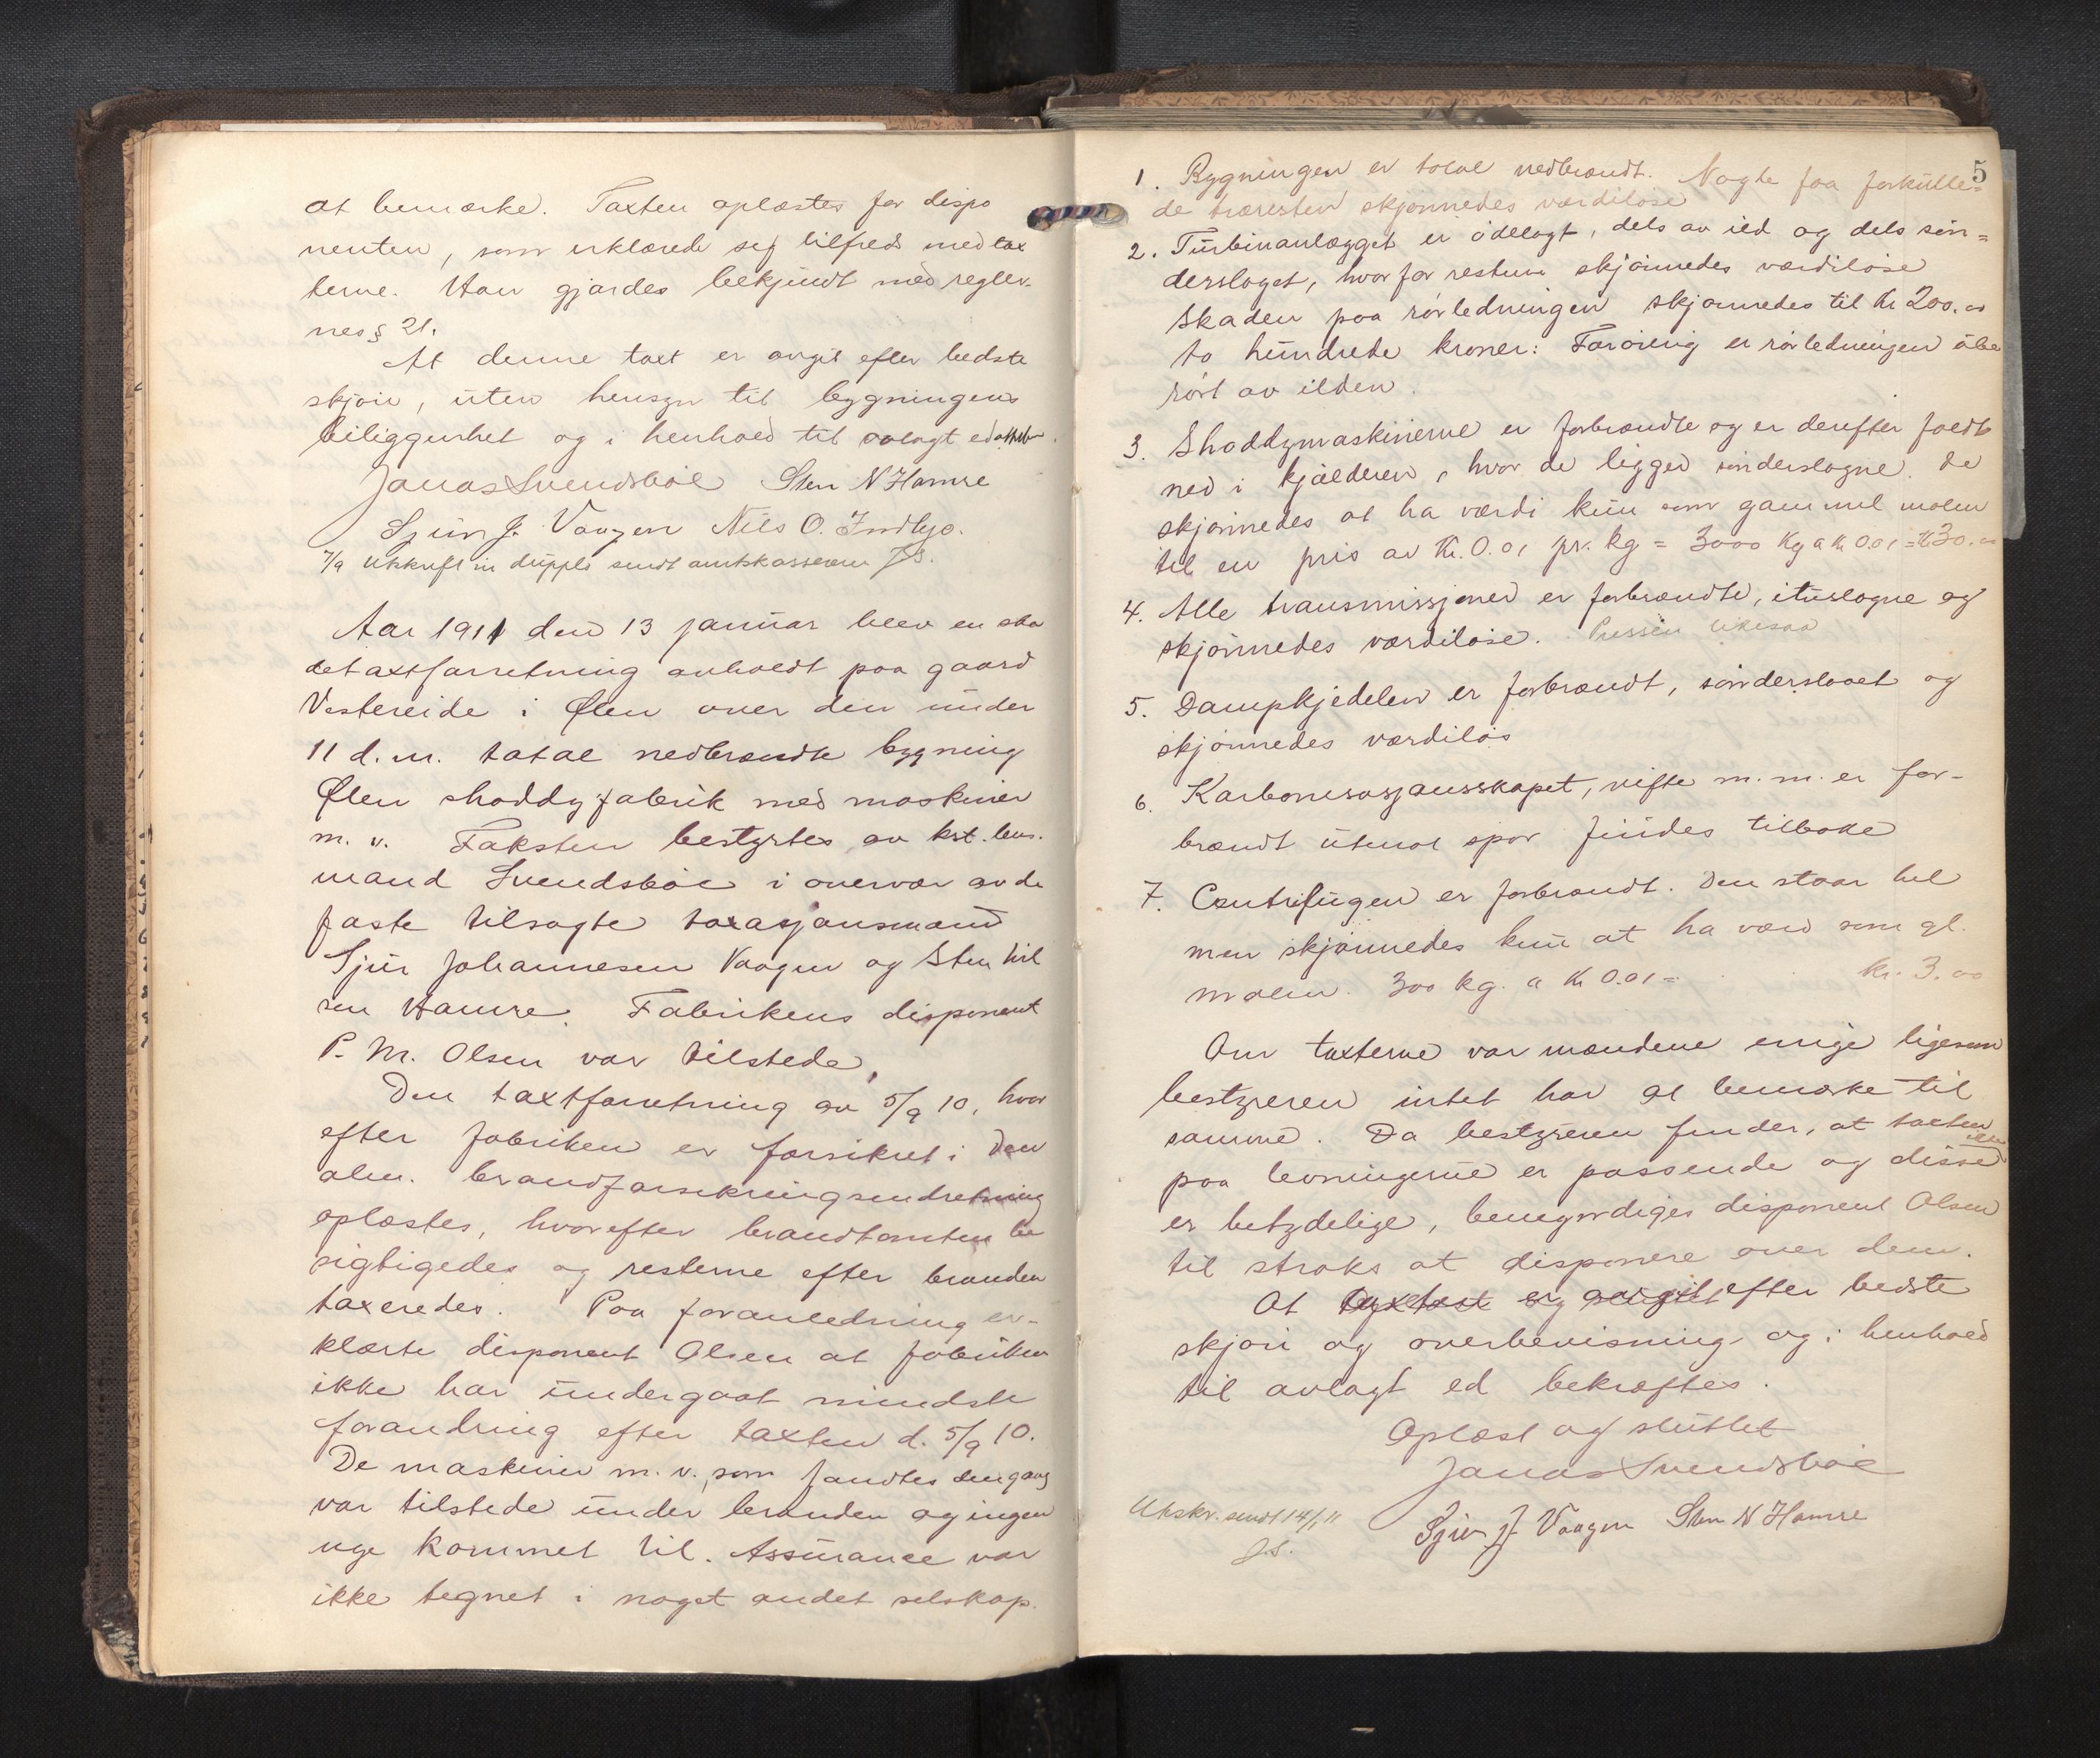 at bemærke. Taxten oplæstes for dispo
nenten, som erklærede sig tilfreds med tax
terne. Han gjørdes bekjendt med regler-
nes § 21.
At denne taxt er avgit efter bedste
skjøn, uten hensyn til bygningens
beliggenhet og i henhold til avlagt ed
Jonas Svendsbøe Sten N Hamre
Sjur J. Vaagen Nils O. Indbjo.
7/9 Utskrift in duplo sendt amtskassereren JS.
Aar 1911 den 13 januar blev en ska
detaxtforretning avholdt paa gaard
Vestereide i Ølen over den under
11 d.m. total nedbrændte bygning
Ølen shoddyfabrik med maskiner
m. v. Taksten bestyrtes av kst. lens-
mand Svendsbøe i overvær av de
faste tilsagte taxasjonsmænd
Sjur Johannesen Vaagen og Sten Nil
sen Hamre. Fabrikens disponent
P. M. Olsen var tilstede.
Den taxtforretning av 5/9 10, hvor
efter fabriken er forsikret i den
alm. brandforsikringsindretning
oplæstes, hvorefter brandtomten be
sigtigedes og resterne efter branden
taxeredes. Paa foranledning er-
klærte disponent Olsen at fabriken
ikke har undergaat mindste
forandring efter taxten d. 5/9 10.
De maskiner m. v., som fandtes dengang
var tilstede under branden og ingen
nye kommet til. Assurance var
ikke tegnet i noget andet selskap.
5
1. Bygningen er total nedbrændt. Nogle faa forkulle-
de trærester skjønnedes værdiløse
2. Turbinanlægget er ødelagt, dels av ild og dels søn=
derslaget, hvorfor resterne skjønnedes værdiløse
Skaden paa rørledningen skjønnedes til Kr 200.00
to hundrede kroner: Forøvrig er rørledningen ube
rørt av ilden.
3. Shoddymaskinerne er forbrændte og er derefter faldt
ned i kjælderen, hvor de ligger sønderslagne. De
skjønnedes at ha værdi kun som gammel malm
til en pris av Kr. 0.01 pr. kg = 3000 Kg a Kr 0.01 = Kr 30.00
4. Alle transmissjoner er forbrændte, ituslagne og
skjønnedes værdiløse. Pressen likesaa
5. Dampkjedelen er forbrændt, sønderslaaet og
skjønnedes værdiløs
6. Karbonisasjonsskapet, vifte m. m. er for-
brændt utenat spor findes tilbake
7. Centrifugen er forbrændt. Den staar hel
men skjønnedes kun at ha værd som gl.
malm. 300 kg. a Kr 0.01 = kr. 3.00
Om taxterne var mændene enige ligesom
bestyreren intet har at bemærke til
samme. Da bestyreren finder, at taxten
paa levningerne er passende og disse
ikke
er betydelige, bemyndiges disponent Olsen
til straks at disponere over dem.
At efter bedste
skjøn og overbevisning og i henhold
til avlagt ed bekræftes.
Oplæst og sluttet
Jonas Svendsbøe
Utskr. sendt 14/1 11
J.S.
Sjur J Vaagen Sten N Hamre